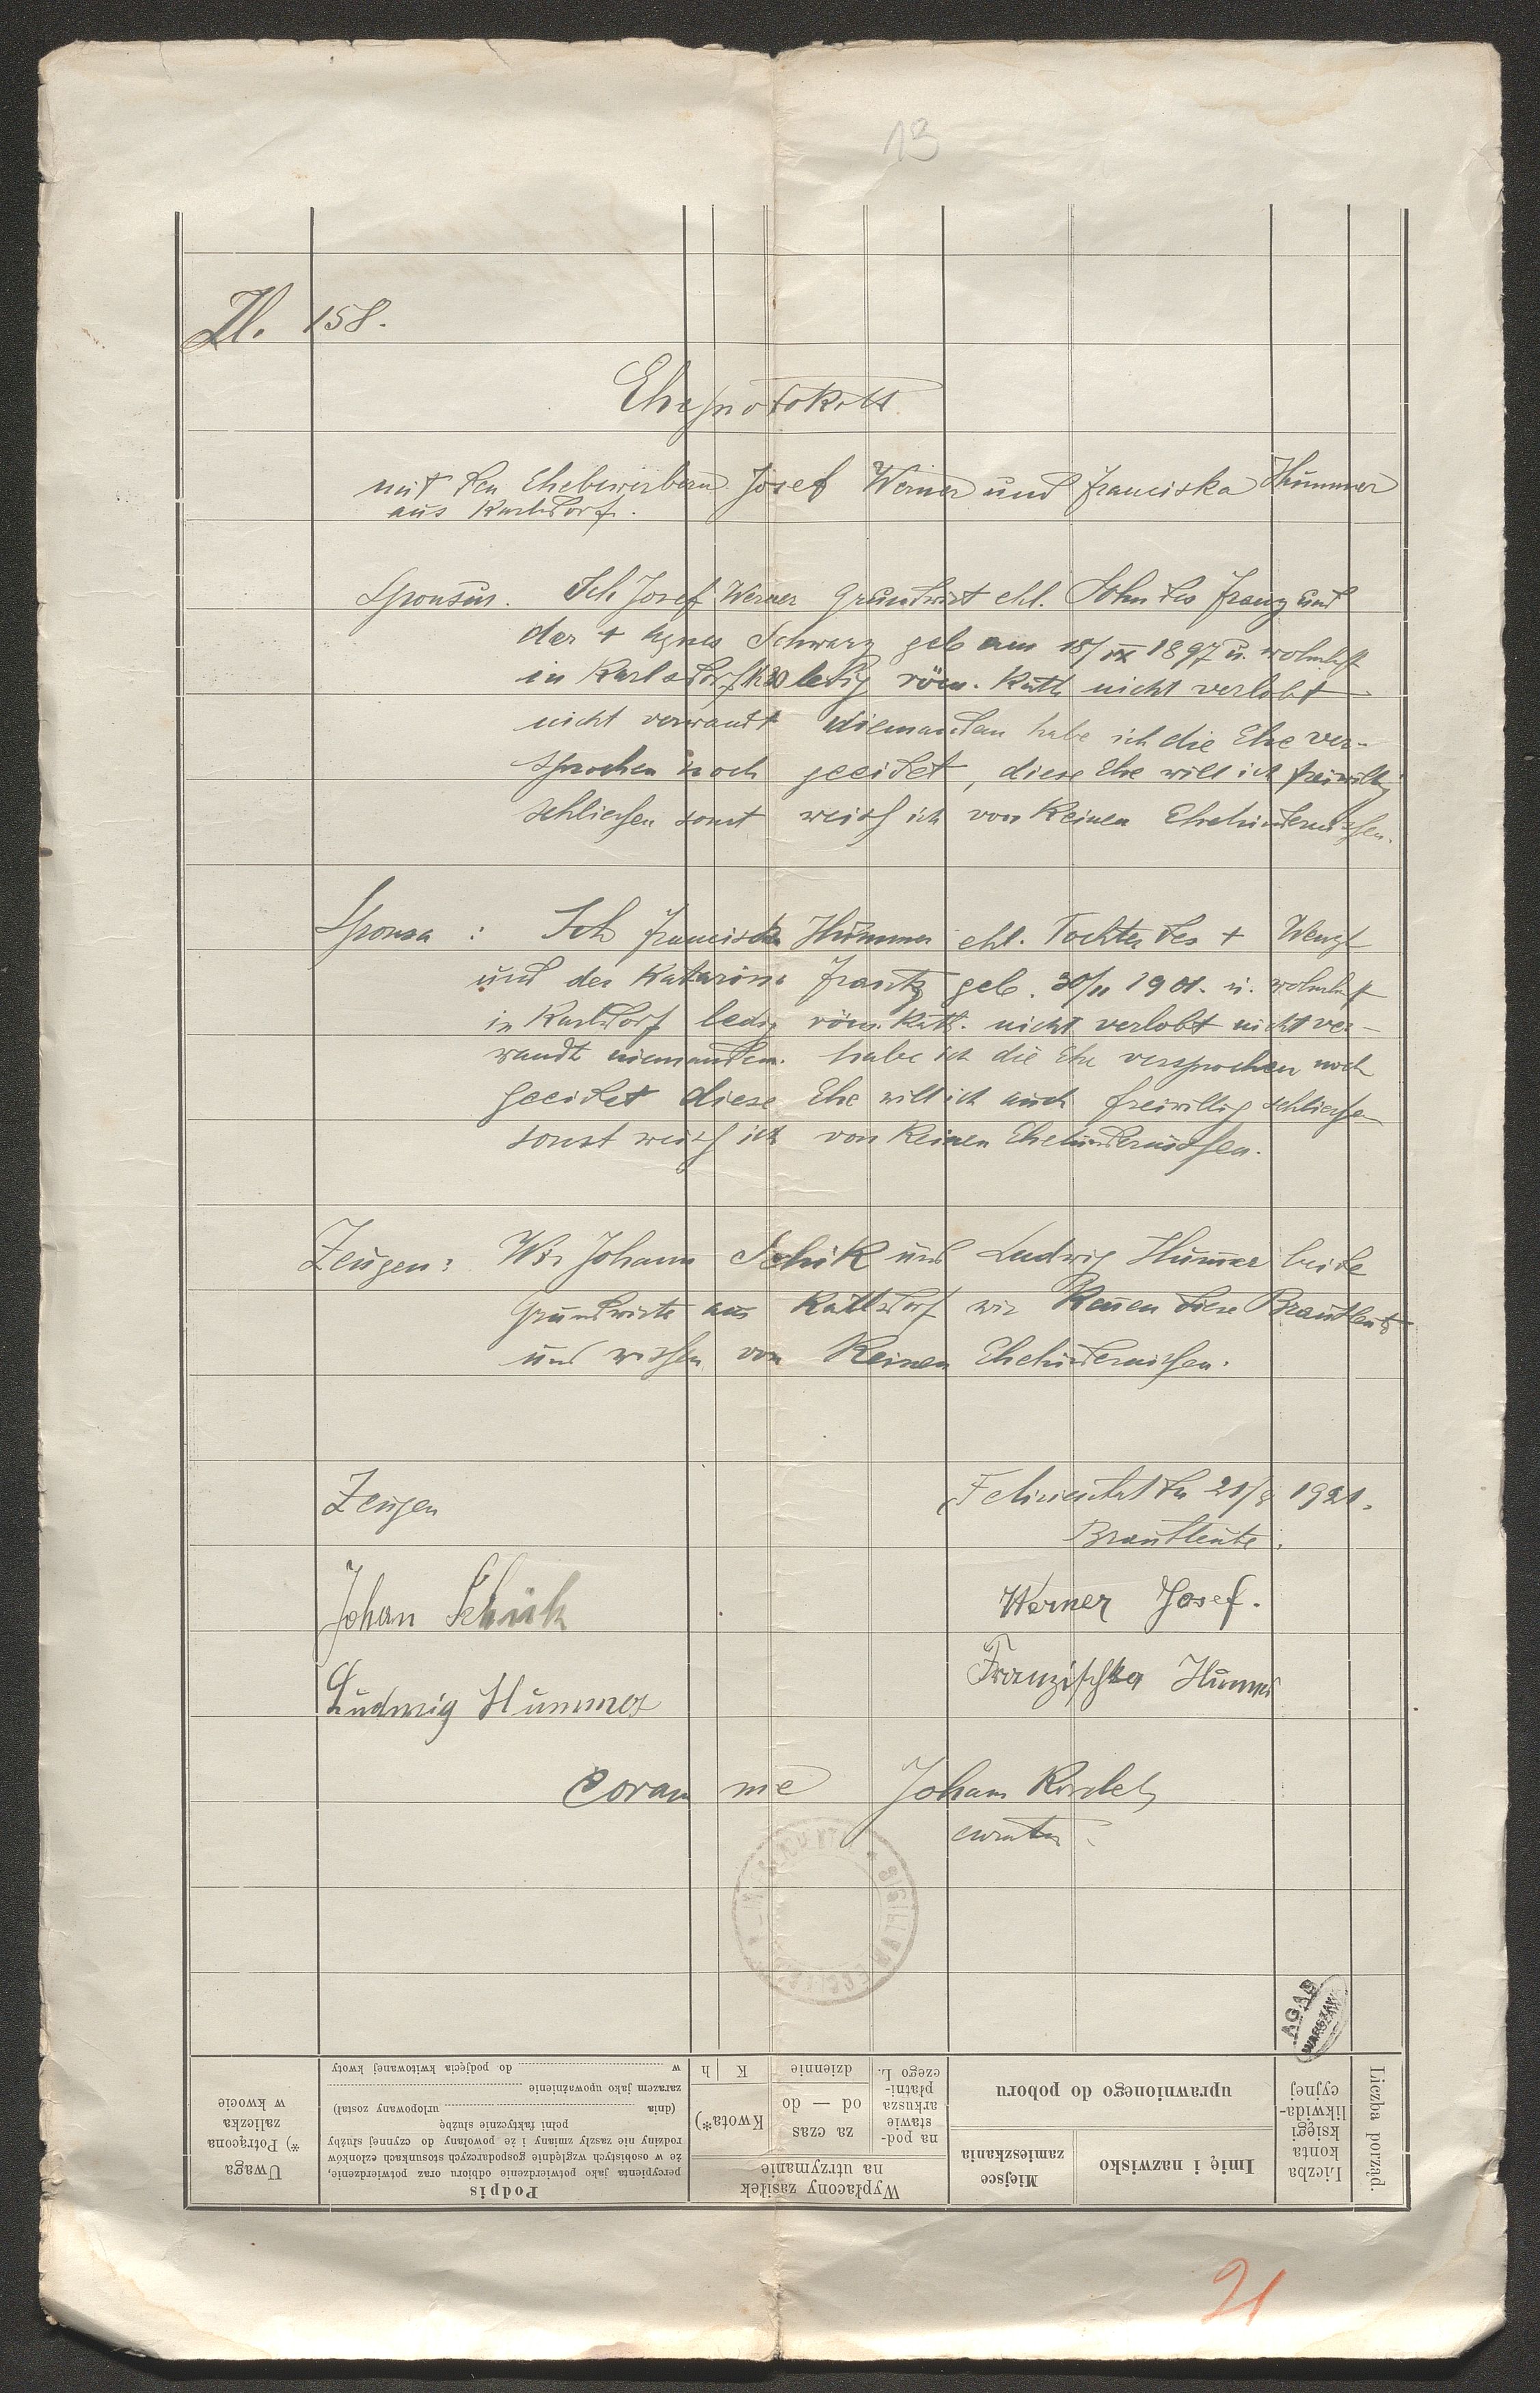 13
Zl. 158.
Eheprotokoll
mit den Ehebewerbern Josef Werner und Franciska Hummer
aus Karlsdorf.
Sponsus. Ich Josef Werner Grundwirt ehl. Sohn des Franz und
der + Agnes Schwarz geb am 18/IX 1897 u. wohnhft
in Karlsdorf N 30 ledig röm. Kath nicht verlobt
nicht verwandt Niemanden habe ich die Ehe ver-
sprochen noch geeidet, diese Ehe will ich freiwillig
schliessen sonst weiss ich von keinen Ehehindernissen.
Sponsa : Ich Franciska Hummer ehl. Tochter des + Wenzl
und der Katarina Frantz geb. 30/11 1901. u. wohnhaft
in Karlsdorf ledig röm. Kath. nicht verlobt nicht ver-
wandt niemanden. habe ich die Ehe versprochen noch
geeidet diese Ehe will ich auch freiwillig schliessen
sonst weiss ich von keinen Ehehindernissen.
Zeugen: Wir Johann Schik und Ludwig Humer beide
Grundwirte aus Karlsdorf wir kenen diese Brautleute
und wissen von keinen Ehehindernissen.
Zeugen
Felizienthal den 21/ 1921.
Brautleute:
Johan Schick
Werner Josef.
Ludwig Hummer
Franzischka Humer
coram me Johann
curatus
SIGILLUM ECCLES
AGAD
WARSZAWA
Liczba porząd.
Liczba konta księgi likwida-cyjnej
Imię i nazwisko
Miejsce zamieszkania
uprawnionego do poboru
Wypłacony zasiłek na utrzymanie
na pod-stawie arkusza płatni-czego L.
za czas od — do
dziennie
Kwota*)
K
h
Podpis
percypienta jako potwierdzenie odbioru oraz potwierdzenie,
że w osobistych względnie gospodarczych stosunkach członków
rodziny nie zaszły zmiany i że powołany do czynnej służby
pełni faktycznie służbę
(dnia urlopowany został)
zarazem jako upoważnienie
w do podjęcia kwitowanej kwoty
Uwaga
*) Potrącona zaliczka w kwocie
21